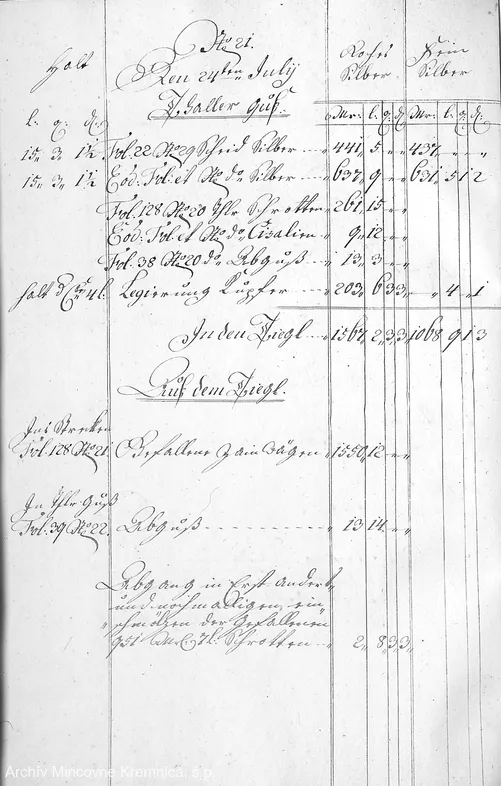 No 21.
Den 24ten July
Thaller Guß.
Halt
Roches Silber
Fein Silber
l. q. d.
Mr. l. q. d. Mr. l. q. d.
15 3 1½ Fol. 22 No 29 Scheid Silber 441 5 - - 437 - - -
15 3 1½ Eod. Fol. et No do Silber 637 9 - - 631 5 1 2
Fol. 128 No 20 Thlr Schrotten 261 15 - -
Eod. Fol. et No do Cizalien 9 12 - -
Fol. 38 No 20 do Abguß 13 3 - -
Halt d 4 l. Legierung Kupfer 203 6 3 3 - 4 - 1
In den Tiegl 1567 2 3 3 1068 9 1 3
Auß dem Tiegl.
Ins Strecken
Fol. 128 No 21. Gefallene Zain Wägen 1550 12 - -
In Thlr Guß
Fol. 39 No 22. Abguß 13 14 - -
Abgang in Erst Andert
und nochmalligen ein
schmölzen der Gefallenen
951 Mr. Tl. Schrotten 2 8 3 3
Archív Mincovne Kremnica, š.p.